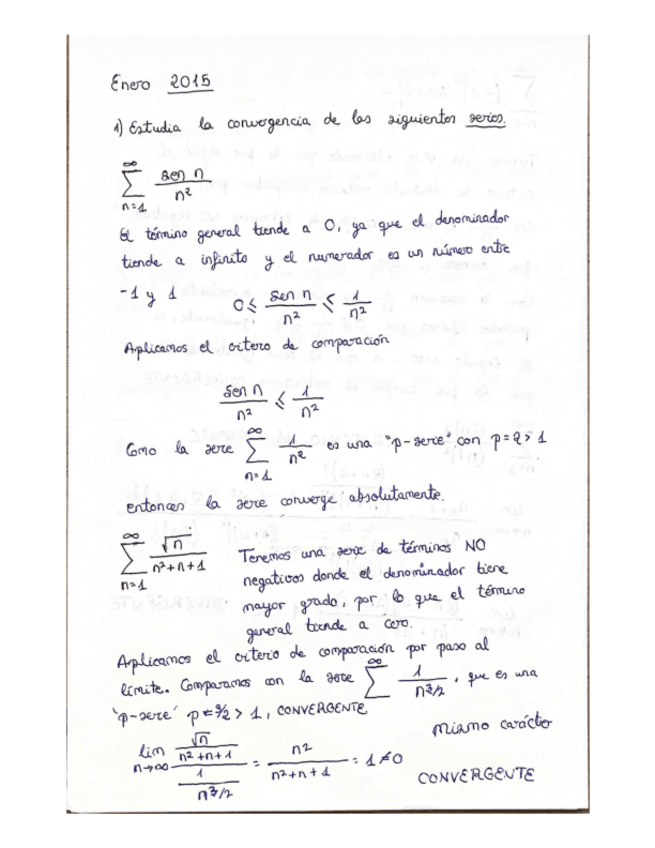 Enero 2015
1) Estudia la convergencia de las siguientes series.
∑_{n=1}^{∞} sen n / n²
El término general tiende a 0, ya que el denominador
tiende a infinito y el numerador es un número entre
-1 y 1 0 ≤ sen n / n² ≤ 1 / n²
Aplicamos el critero de comparación
sen n / n² ≤ 1 / n²
Como la serie ∑_{n=1}^{∞} 1 / n² es una "p-serie" con p=2>1
entonces la serie converge absolutamente.
∑_{n=1}^{∞} √n / n²+n+1 Tenemos una serie de términos NO
negativos donde el denominador tiene
mayor grado, por lo que el término
general tiende a cero.
Aplicamos el criterio de comparación por paso al
límite. Comparamos con la serie ∑^{∞} 1 / n^{3/2}, que es una
'p-serie' p=3/2 > 1, CONVERGENTE
mismo carácter
lim_{n→∞} (√n / n²+n+1) / (1 / n^{3/2}) = n² / n²+n+1 = 1≠0
CONVERGENTE